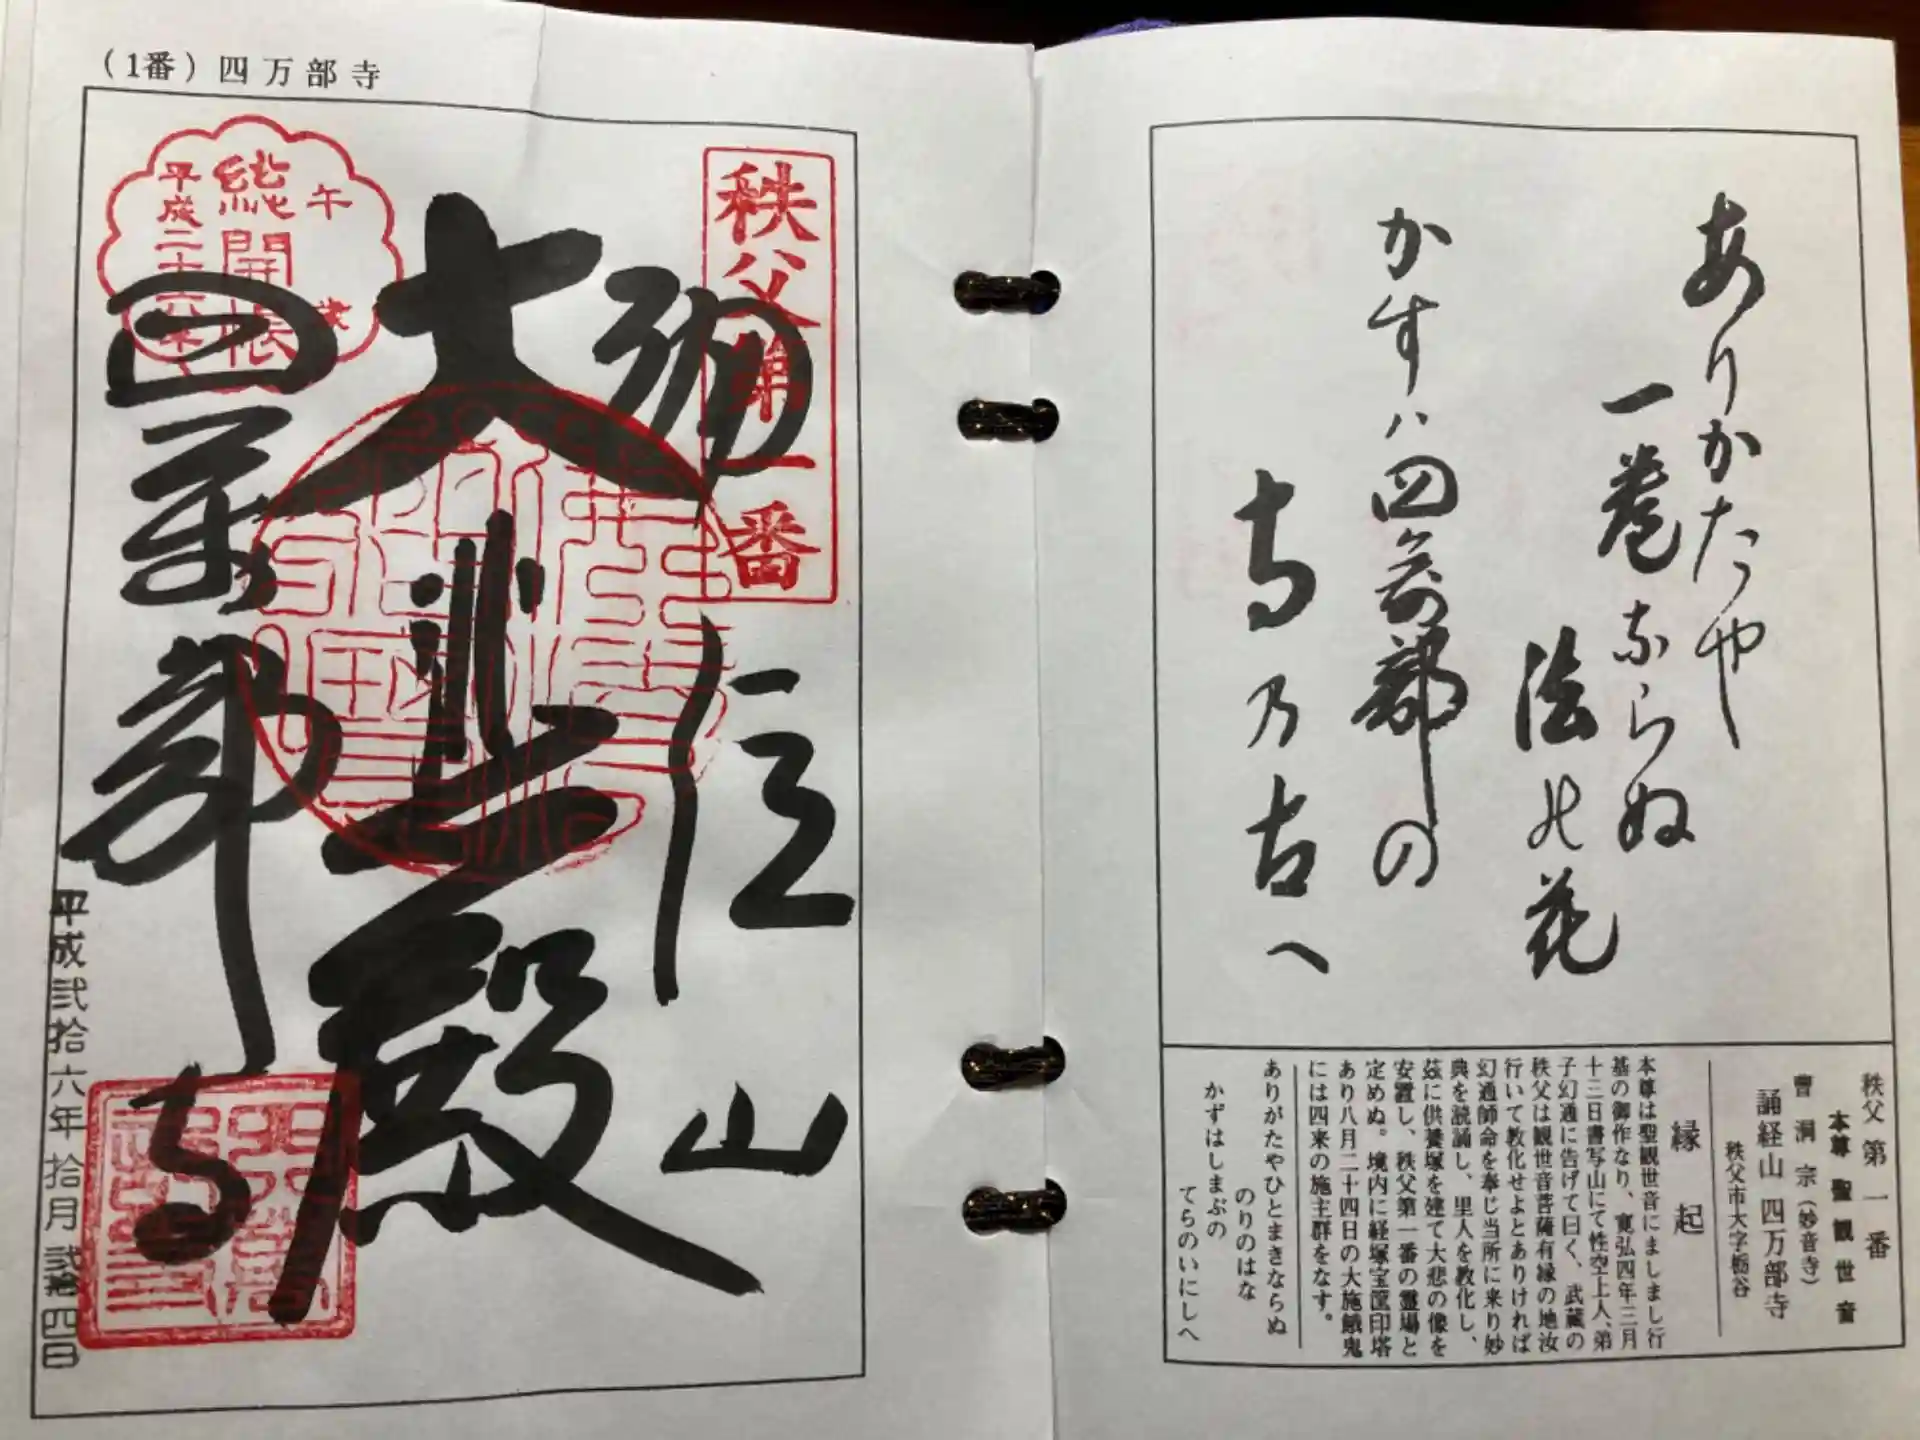 (1番) 四万部寺
秩父第一番
午歳
総開帳
平成二十六年
誦経山
大悲殿
四萬部寺
平成弐拾六年拾月弐拾四日
ありかたや
一巻ならぬ
法の花
かすハ四萬部の
寺乃古へ
秩父第一番
本尊 聖観世音
曹洞宗(妙音寺)
誦経山 四万部寺
秩父市大字栃谷
縁起
本尊は聖観世音にましまし行
基の御作なり、寛弘四年三月
十三日書写山にて性空上人、弟
子幻通に告げて曰く、武蔵の
秩父は観世音菩薩有縁の地汝
行いて教化せよとありければ
幻通師命を奉じ当所に来り妙
典を読誦し、里人を教化し、
玆に供養塚を建て大悲の像を
安置し、秩父第一番の霊場と
定めぬ。境内に経塚宝篋印塔
あり八月二十四日の大施餓鬼
には四来の施主群をなす。
ありがたやひとまきならぬ
のりのはな
かずはしまぶの
てらのいにしへ